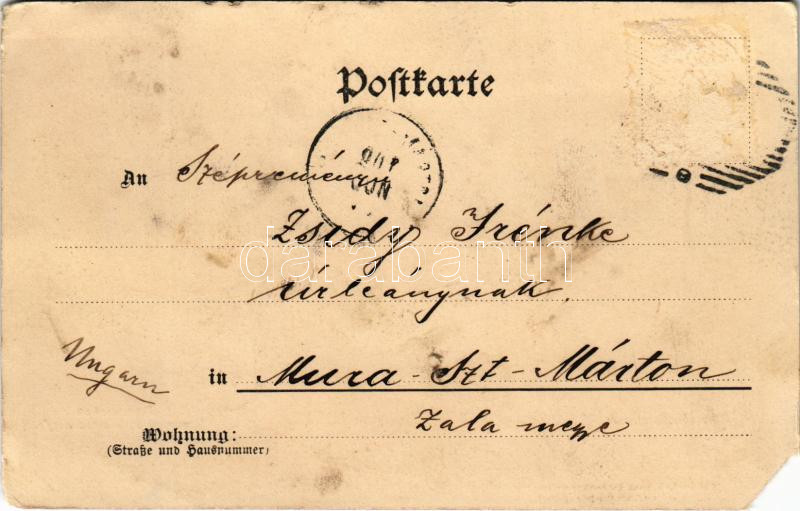 Postkarte
An Szépreményű
Zsidy Irénke
úrleánynak.
Ungarn
in Mura-Szt-Márton
Zala megye
Wohnung:
(Straße und Hausnummer)
darabanth